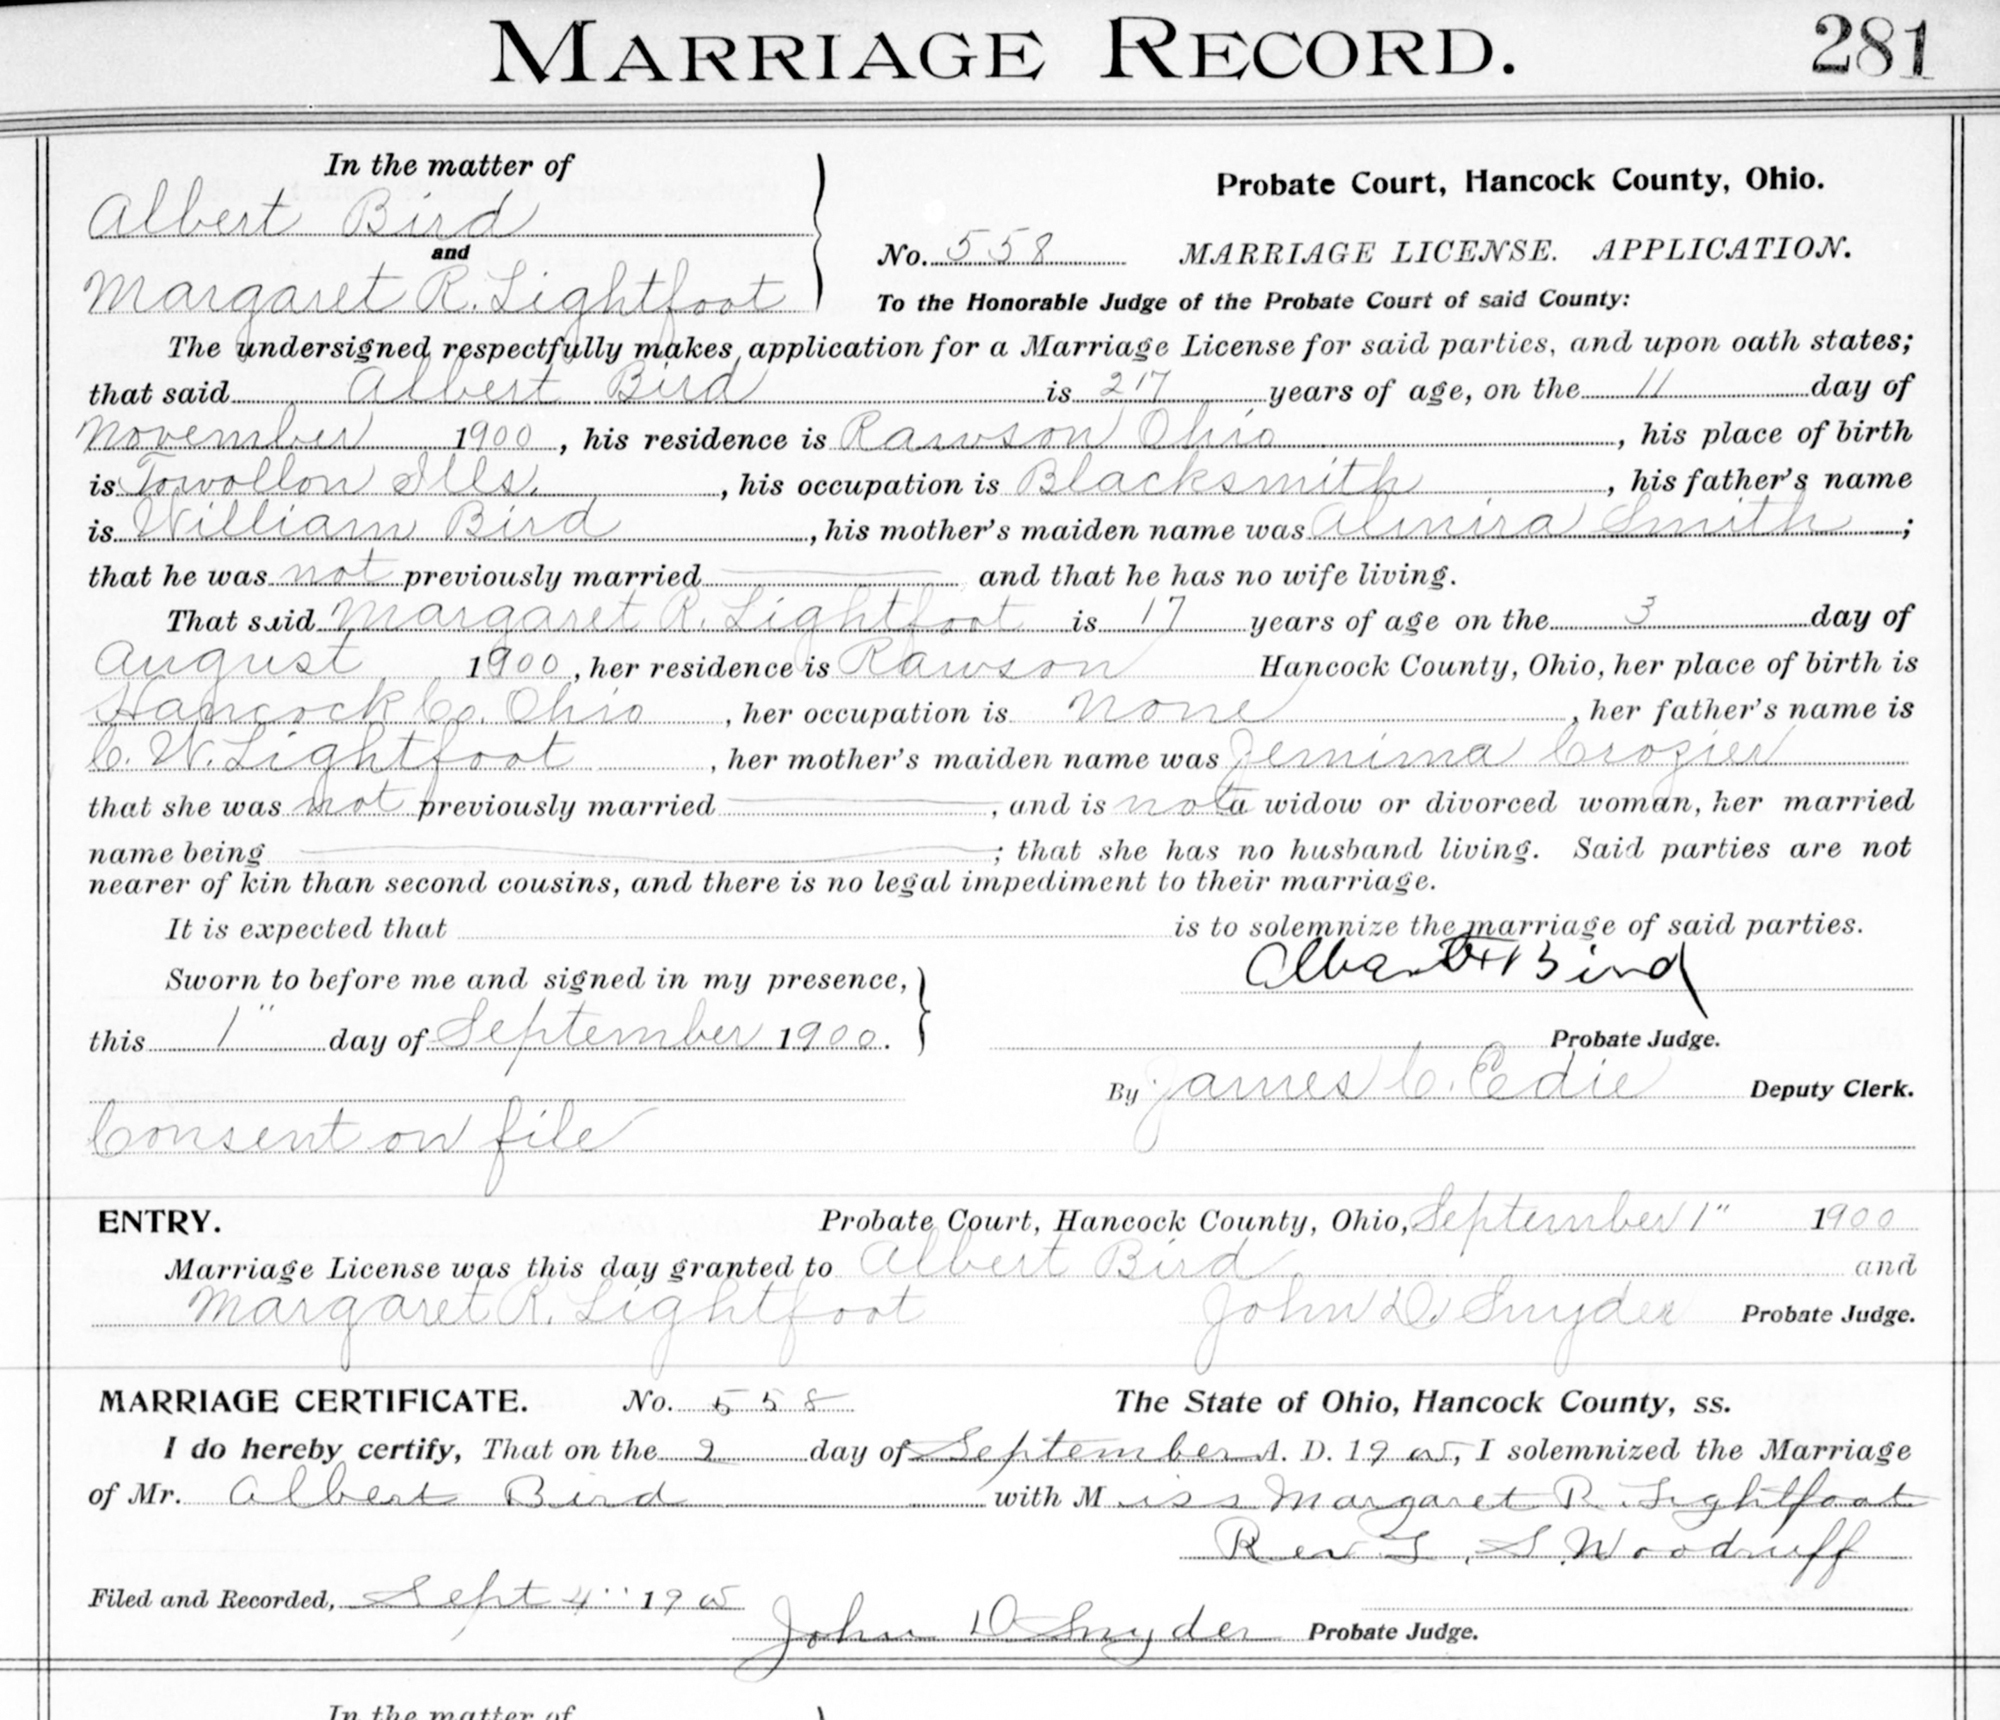 MARRIAGE RECORD. 281
In the matter of
Albert Bird
and
Margaret R. Lightfoot
Probate Court, Hancock County, Ohio.
No. 558 MARRIAGE LICENSE. APPLICATION.
To the Honorable Judge of the Probate Court of said County:
The undersigned respectfully makes application for a Marriage License for said parties, and upon oath states;
that said Albert Bird is 27 years of age, on the 11 day of
November 1900, his residence is Rawson Ohio, his place of birth
is Towollon Ills., his occupation is Blacksmith, his father's name
is William Bird, his mother's maiden name was Almira Smith;
that he was not previously married and that he has no wife living.
That said Margaret R. Lightfoot is 17 years of age on the 3 day of
August 1900, her residence is Rawson Hancock County, Ohio, her place of birth is
Hancock Co. Ohio, her occupation is None, her father's name is
C. W. Lightfoot, her mother's maiden name was Jemima Crozier
that she was not previously married, and is not a widow or divorced woman, her married
name being ; that she has no husband living. Said parties are not
nearer of kin than second cousins, and there is no legal impediment to their marriage.
It is expected that is to solemnize the marriage of said parties.
Albert Bird
Sworn to before me and signed in my presence,
this 1" day of September 1900.
Probate Judge.
By James C. Edie Deputy Clerk.
Consent on file
ENTRY. Probate Court, Hancock County, Ohio, September 1" 1900
Marriage License was this day granted to Albert Bird and
Margaret R. Lightfoot John D. Snyder Probate Judge.
MARRIAGE CERTIFICATE. No. 558 The State of Ohio, Hancock County, ss.
I do hereby certify, That on the 2 day of September A. D. 1900, I solemnized the Marriage
of Mr. Albert Bird with Miss Margaret R. Lightfoot
Rev S. Woodruff
Filed and Recorded, Sept 4" 1900
John D Snyder Probate Judge.
In the matter of